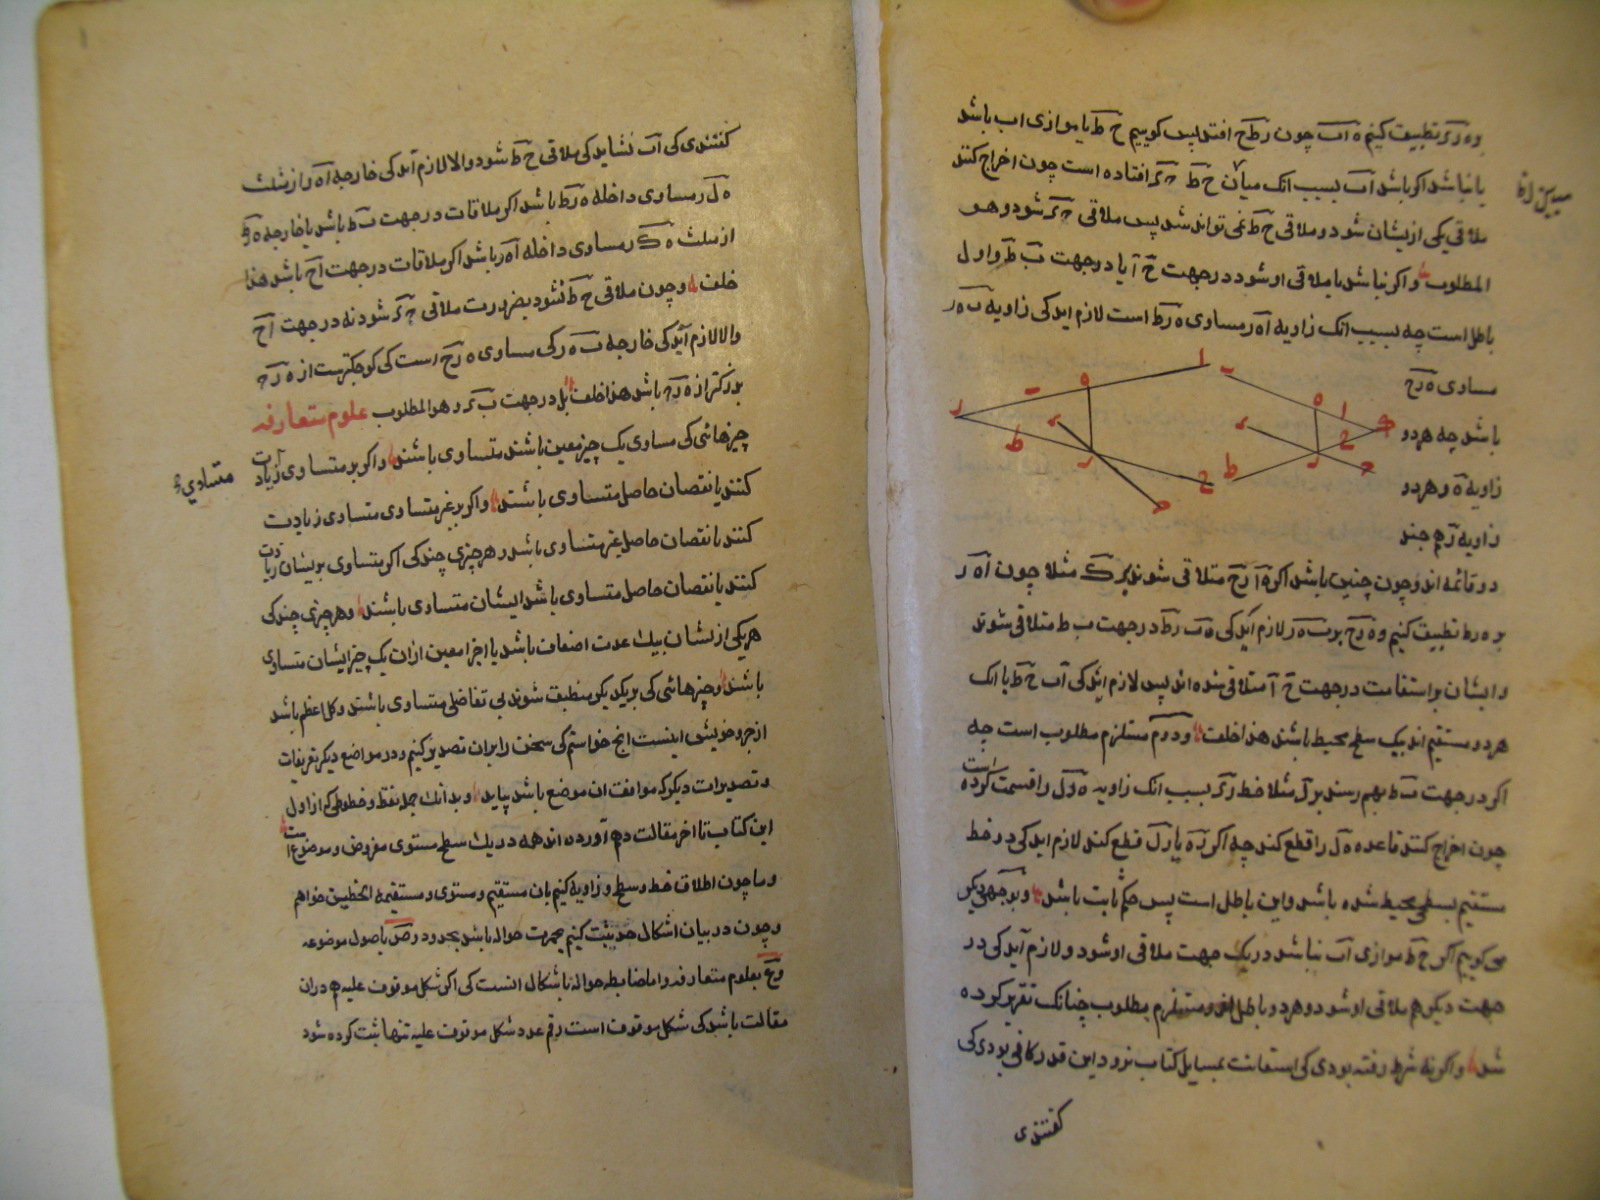 وه رَ تطبیق کنیم ه اب چون رط ح افتد پس کوییم ح ط یا موازی اب باشد
یا نباشد اکر باشد اب بسبب انک میان ح ط افتاده است چون اخراج کنند
ملاقی یکی از یشان شود و ملاقی ح ط نمی تواند شد پس ملاقی شود و هو
المطلوب و اکر نباشد یا ملاقی او شود در جهت ح ا یا در جهت ب ط و اول
باطل است چه بسبب انک زاویه اه ر مساوی ه رط است لازم اید کی زاویه ب ه ر
مساوی ه رح
باشد چه هر دو
زاویه ه و هر دو
زاویه ر هم چند
دو قائمه اند و چون چنین باشد اکر ه ا رح متلاقی شوند بر ک مثلا چون اه ر
بر ه رط تطبیق کنیم و ه رح بر ب ه ر لازم اید کی ه ب رط در جهت ب ط متلاقی شوند
و ایشان بر استقامت در جهت ح ا متلاقی شده اند پس لازم اید کی اب ح ط با انک
هر دو مستقیم اند بیک سطح محیط باشند هذا خلف و دوم مستلزم مطلوب است چه
اکر در جهت ب ط بهم رسند بر ل مثلا خط بسبب انک زاویه ه رل را قسمت کرده است
چون اخراج کنند قاعده ه ل را قطع کند چه اکر ره یا رل قطع کند لازم اید کی دو خط
مستقیم بسطحی محیط شده باشد و این باطل است پس حکم ثابت باشد و بوجهی دیکر
می کوییم اکر ح ط موازی اب نباشد در یک جهت ملاقی او شود و لازم آید کی در
جهت دیکر هم ملاقی او شود و هر دو باطل و مستلزم مطلوب چنانک تقریر کرده
شد و اکر نه شرط رفته بودی کی استعانت بمسایل کتاب نرود این قدر کافی بودی کی
کفتندی
کفتندی کی اب نشاید کی ملاقی ح ط شود و الا لازم آید کی خارجه اه ر از مثلث
ه ل ر مساوی داخله ه رط باشد اکر ملاقات در جهت ب ط باشد یا خارجه ه رط
از مثلث ه ک ر مساوی داخله اه ر باشد اکر ملاقات در جهت اح باشد هذا
خلف و چون ملاقی ح ط نشود بضرورت ملاقی شود نه در جهت اح
و الا لازم آید کی خارجه ب ه ر کی مساوی ه رح است کی کوچکترست از ه ر
بزرکتر از ه ر باشد هذا خلف بل در جهت ب و هو المطلوب علوم متعارفه
چیزهائی کی مساوی یک چیز معین باشند متساوی باشند و اکر بر متساوی زیادت
متساوی
کنند یا نقصان حاصل متساوی باشند و اکر بر غیر متساوی متساوی زیادت
کنند یا نقصان حاصل غیر متساوی باشد و هر چیزی چند کی اکر متساوی بریشان زیادت
کنند یا نقصان حاصل متساوی باشد ایشان متساوی باشند و هر چیزی چند کی
هر یکی ازیشان بیک عدت اضعاف باشد یا اجزا معین از ان یک چیز ایشان متساوی
باشند و چیزهائی کی بر یکدیکر منطبق شوند بی تفاضلی متساوی باشند و کل اعظم باشد
از جزو خویش اینست انج خواستم کی سخن را بران تصدیر کنیم و در مواضع دیکر تعریفات
و تصدیرات دیکر که موافقت ان موضع باشد بیاید و بدانک جمله نقط و خطوطی که از اول
این کتاب تا اخر مقالت دهم آورده اند همه در یک سطح مستوی مفروض و موضوع است
و ما چون اطلاق خط و سطح و زاویه کنیم بان مستقیم و مستوی و مستقیمة الخطین خواهم
و چون در بیان اشکال حدیث کنیم حوالة باشد بحدود و ص باصول موضوعه
و ع بعلوم متعارفه و اما ضابطه حوالة باشکال انست کی اکر شکل موقوف علیه هم دران
مقالت باشد کی شکل موقوف است رقم عدد شکل موقوف علیه تنها ثبت کرده شود